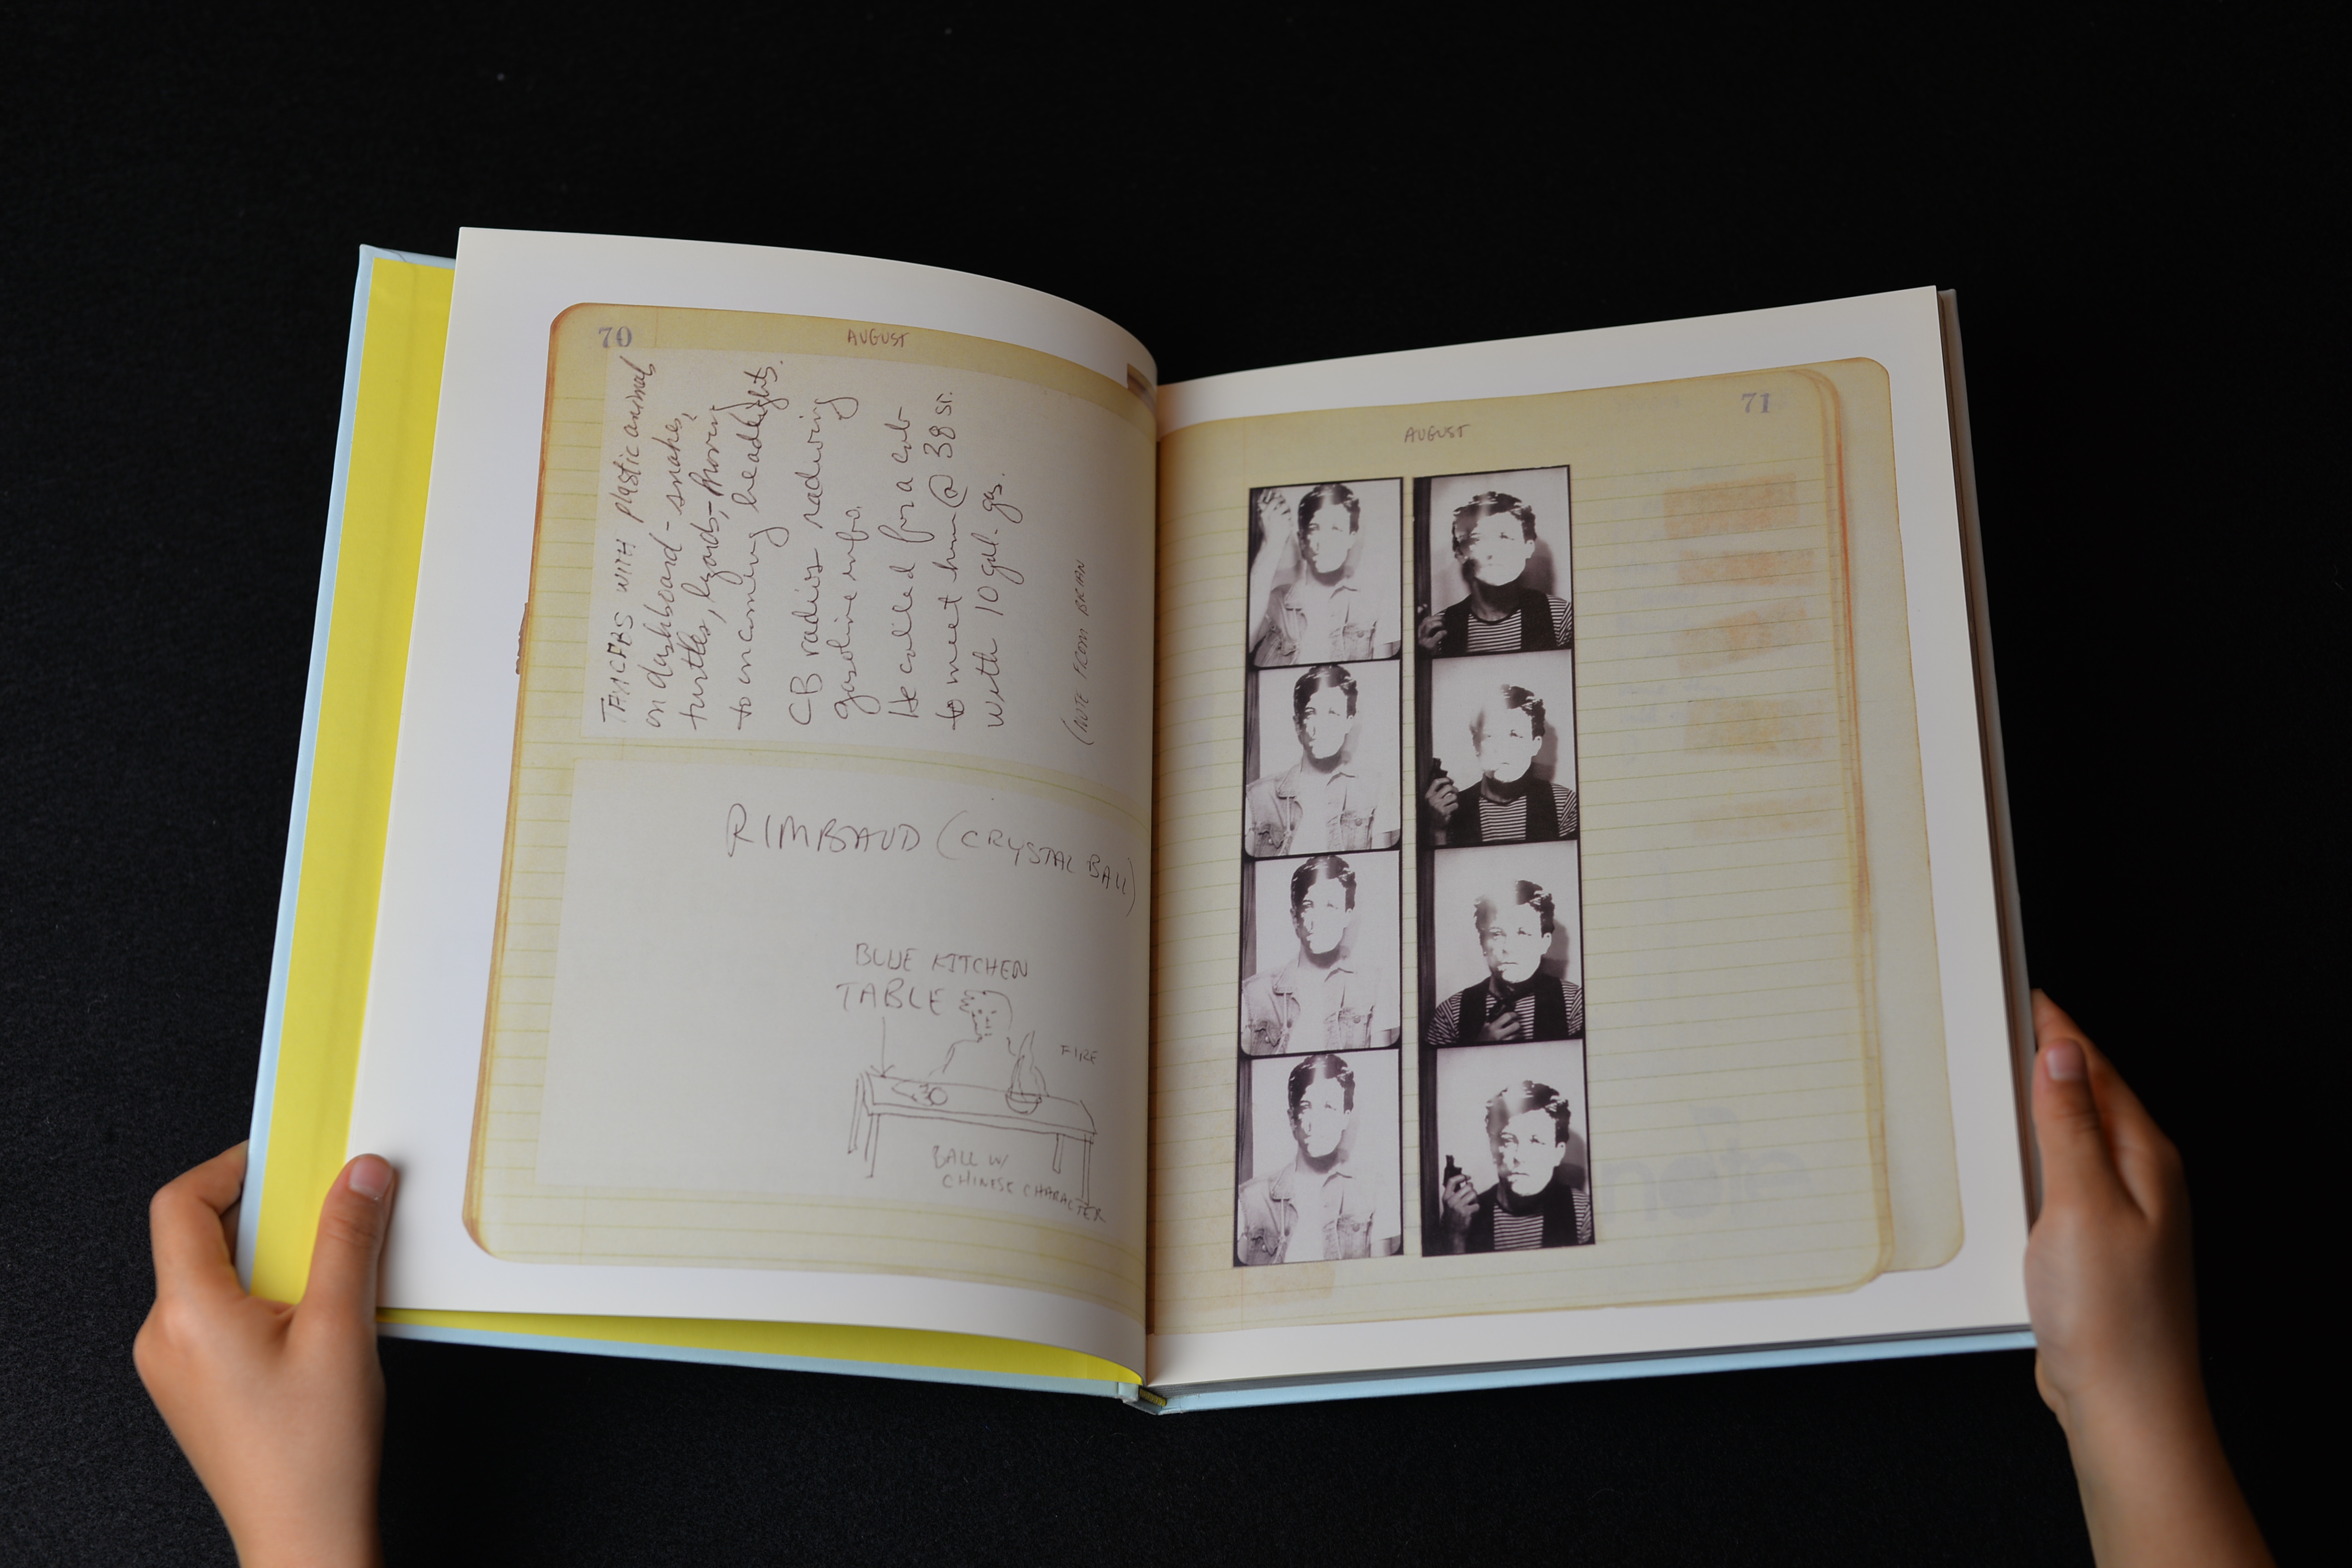 70
AUGUST
TRUCKERS WITH plastic animals
on dashboard - snakes,
turtles, lizards, - moving
to oncoming headlights.
CB radios radioing
gasoline info.
He called for a cab
to meet him @ 38 st.
with 10 gal. gas.
(NOTE FROM BRIAN
RIMBAUD (CRYSTAL BALL)
BLUE KITCHEN
TABLE
FIRE
BALL W/
CHINESE CHARACTER
71
AUGUST